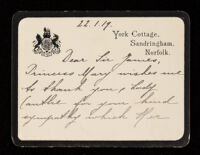 22.1.19
York Cottage,
Sandringham,
Norfolk.
Dear Sir James,
Princess Mary wishes me
to thank you & Lady
Cantlie for your kind
sympathy which Her